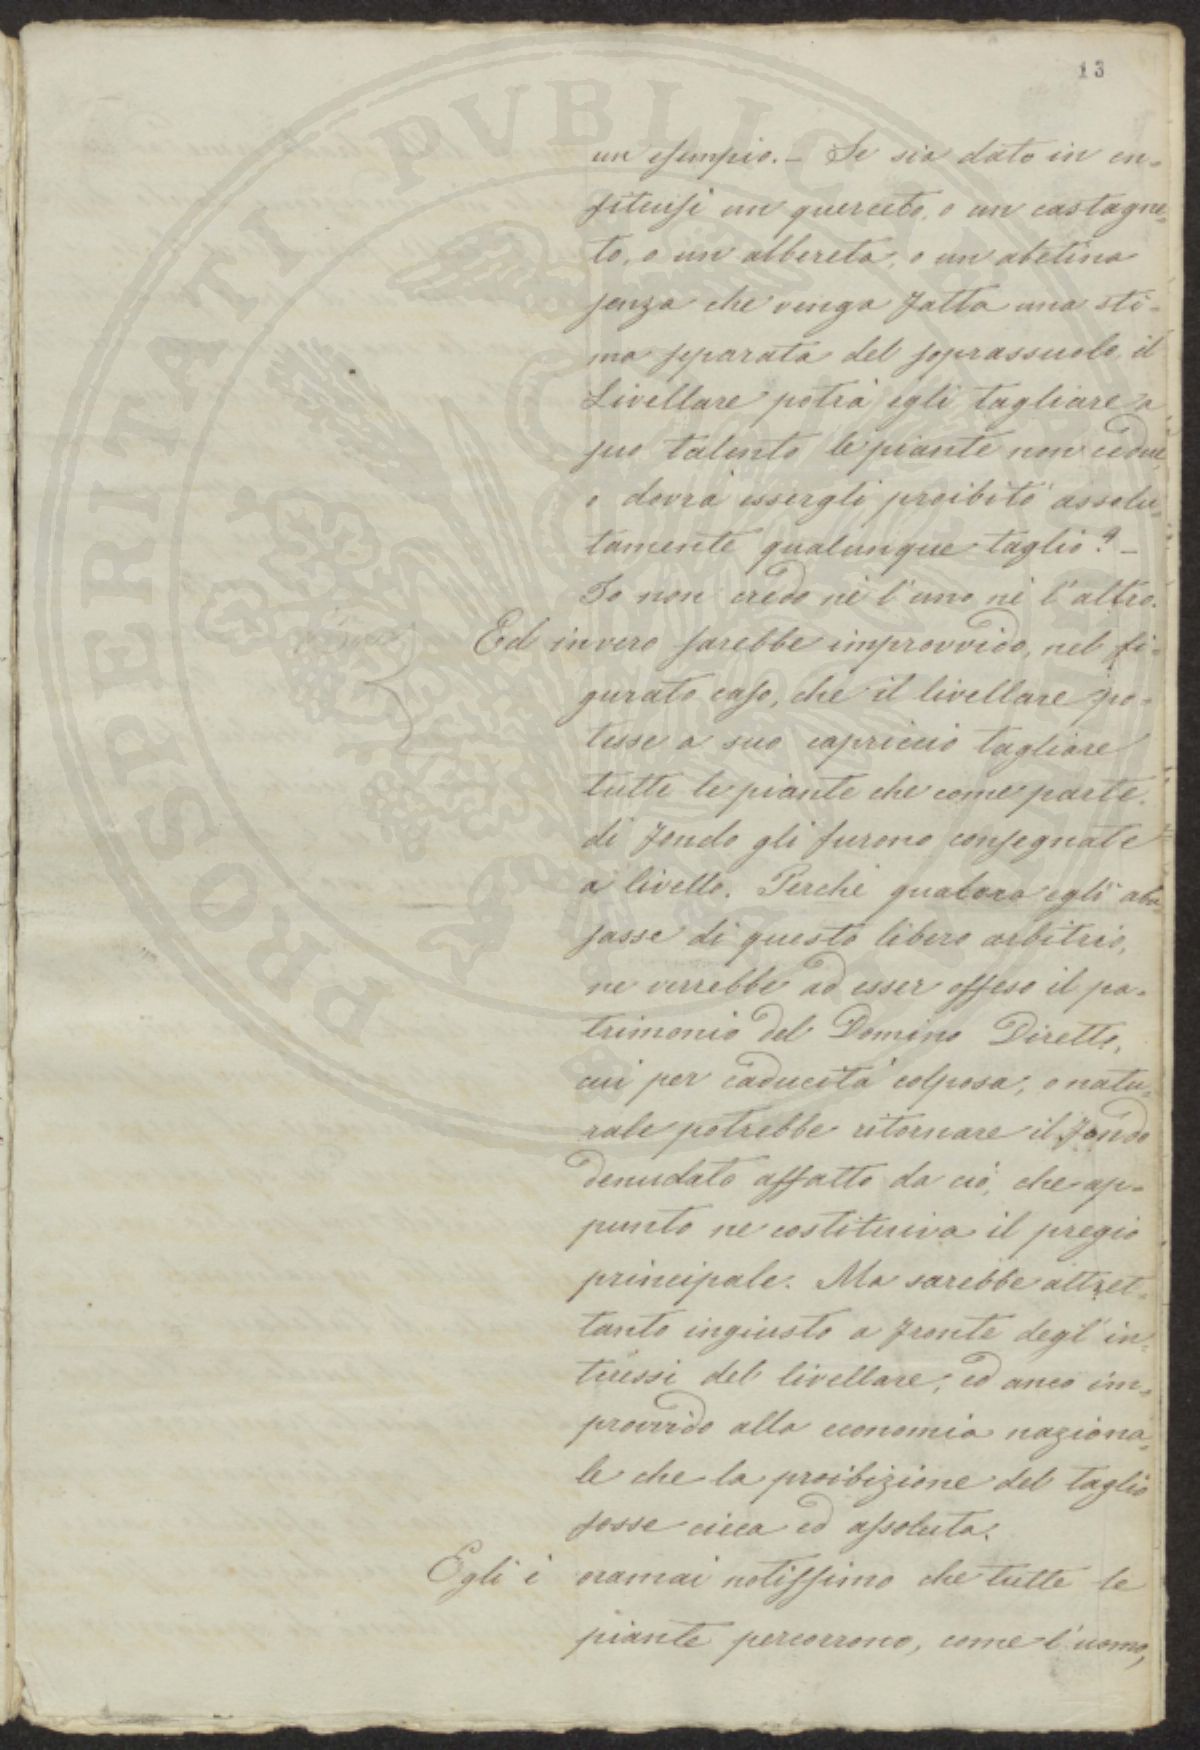 13
un esempio. – Se sia dato in en-
fiteusi un querceto, o un castagne-
to, o un albereta, o un abetina
senza che venga fatta una sti-
ma separata del soprassuolo, il
Livellare potrà egli tagliare a
suo talento le piante non cedue,
o dovrà essergli proibito assolu-
tamente qualunque taglio? –
Io non credo nè l'uno nè l'altro.
Ed invero sarebbe improvvido, nel fi-
gurato caso, che il livellare po-
tesse a suo capriccio tagliare
tutte le piante che come parte
di fondo gli furono consegnate
a livello. Perchè qualora egli abu-
sasse di questo libero arbitrio,
ne verrebbe ad esser offeso il pa-
trimonio del Domino Diretto,
cui per caducità colposa, o natu-
rale potrebbe ritornare il fondo
denudato affatto da ciò, che ap-
punto ne costituiva il pregio
principale. Ma sarebbe altret-
tanto ingiusto a fronte degl'in-
teressi del livellare, ed anco im-
provvido alla economia naziona-
le che la proibizione del taglio
fosse cieca ed assoluta.
Egli è oramai notissimo che tutte le
piante percorrono, come l'uomo,
PROSPERITATI PVBLICAE